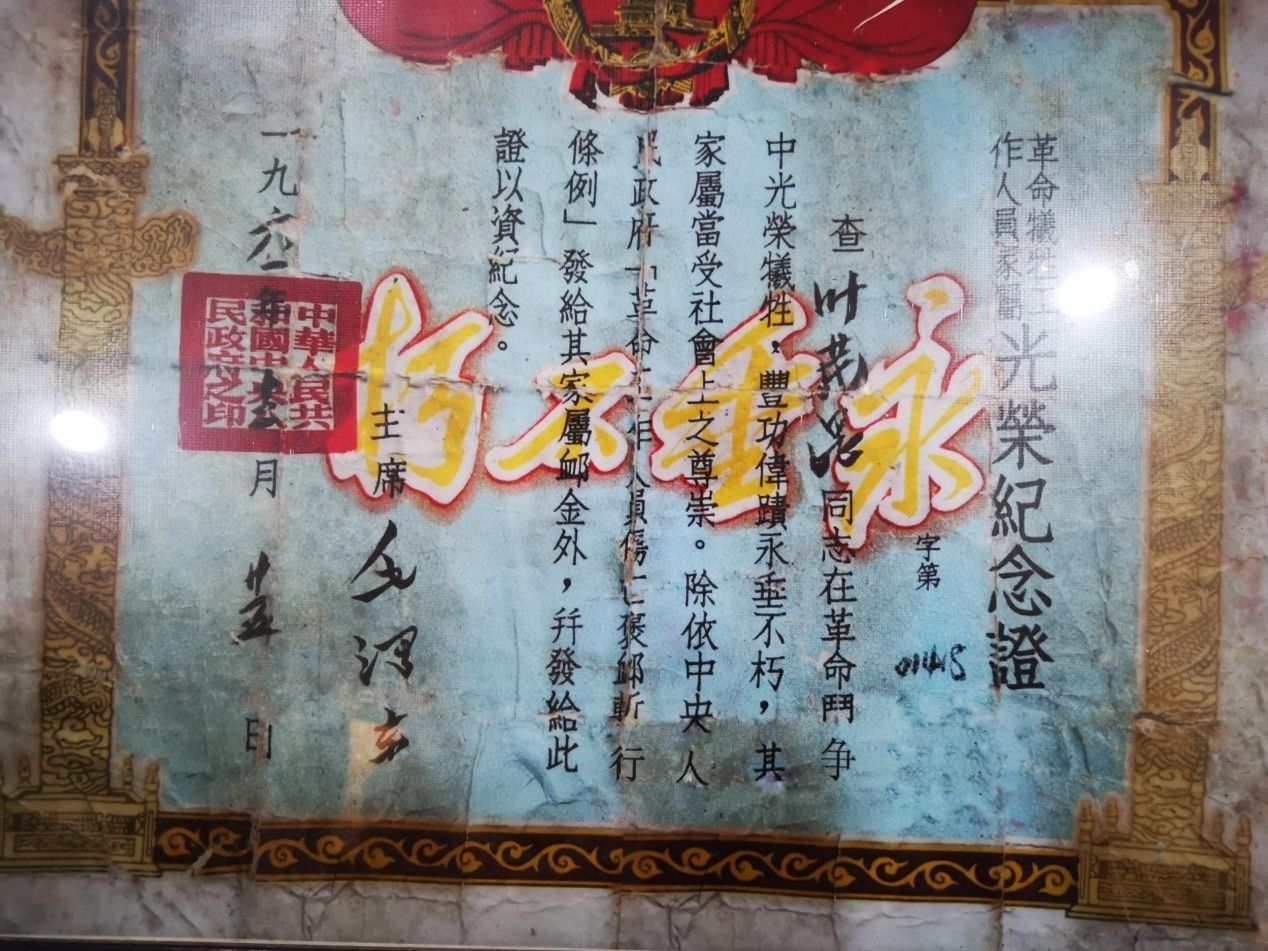 革命犧牲工
作人員家屬
光榮紀念證
字第 011445
查叶茂浩同志在革命鬥争
中光榮犧牲,豐功偉蹟永垂不朽,其
家屬當受社會上之尊崇。除依中央人
民政府「革命工作人員傷亡褒卹暫行
條例」發給其家屬卹金外,幷發給此
證以資紀念。
主席 毛澤東
一九 年 月 廿五 日
永垂不朽
中華人民共
和國中央人
民政府之印